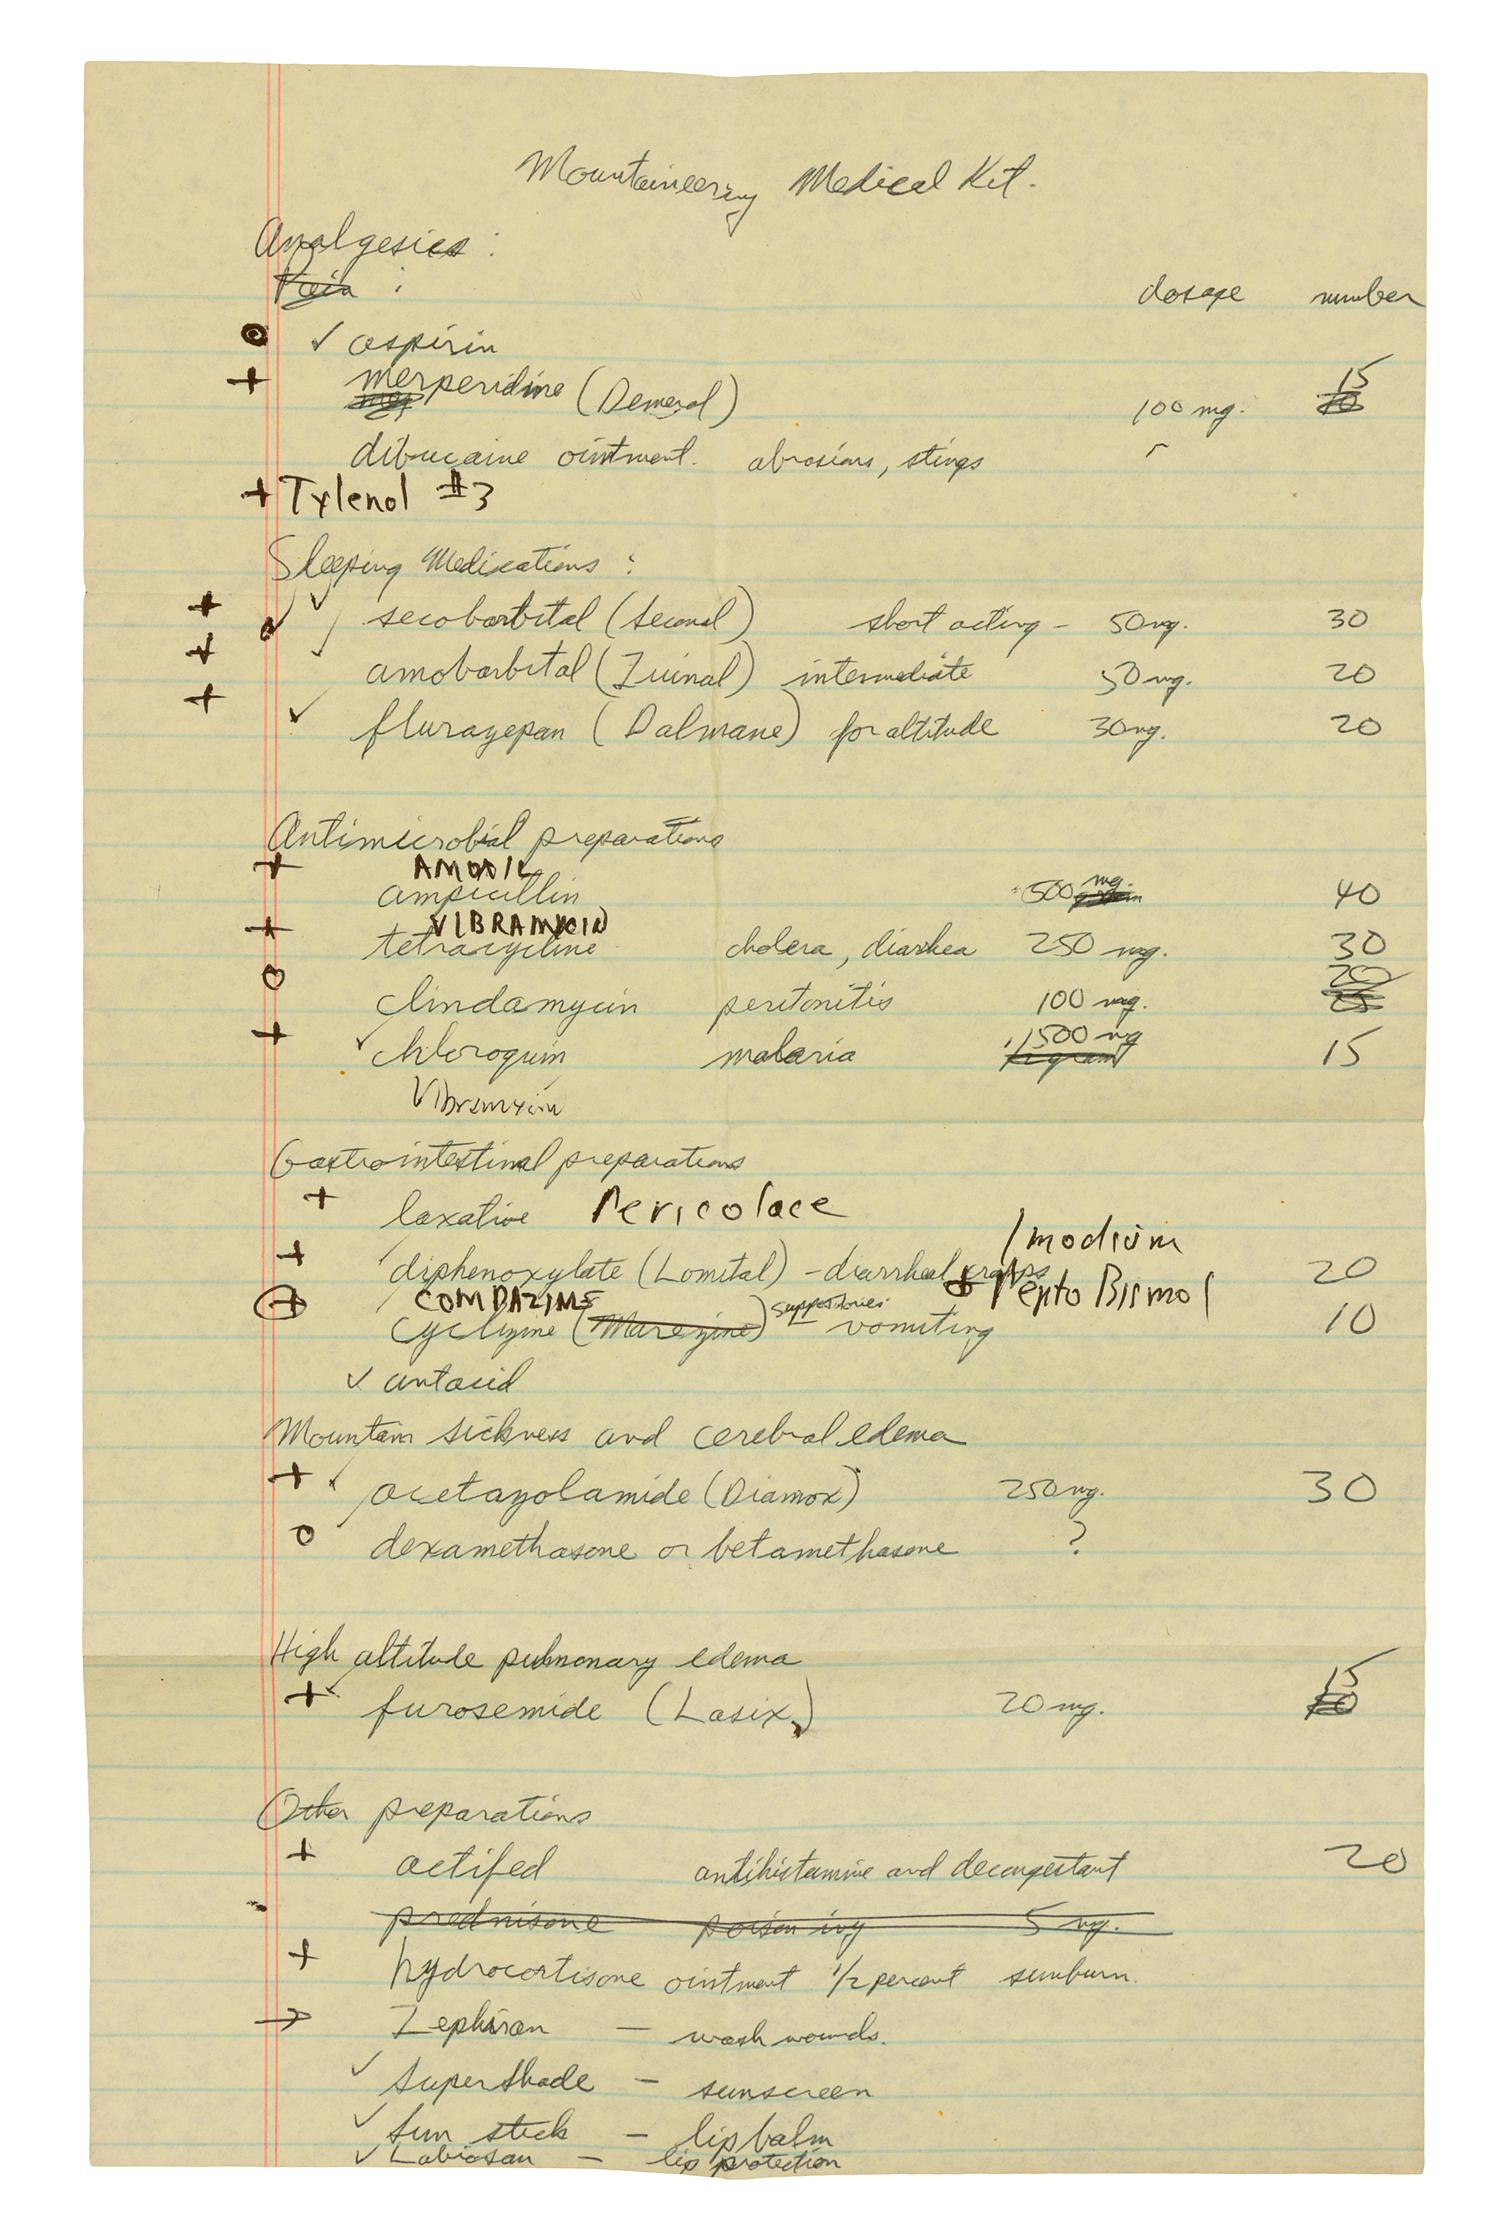 Mountaineering Medical Kit.
Analgesics :
Pain :
dosage number
✓ aspirin
+ merperidine (Demerol) 100 mg. 15
dibucaine ointment. abrasions, stings
+ Tylenol #3
Sleeping Medications :
+ ✓ secobarbital (Seconal) short acting - 50 mg. 30
+ ✓ amobarbital (Tuinal) intermediate 50 mg. 20
+ ✓ flurazepan (Dalmane) for altitude 30 mg. 20
Antimicrobial preparations
+ AMOXIL
ampicillin 500 mg. 40
+ VIBRAMYCIN
tetracycline cholera, diarrhea 250 mg. 30
o clindamycin peritonitis 100 mg. 20
+ ✓ chloroquin malaria 500 mg 15
Vibramycin
Gastrointestinal preparations
+ laxative Pericolace
Imodium
+ diphenoxylate (Lomital) - diarrheal cramps 20
+ Pepto Bismol
+ COMPAZINE
cyclizine (Marezine) suppositories - vomiting 10
✓ antacid
Mountain sickness and cerebral edema
+ ✓ acetazolamide (Diamox) 250 mg. 30
o dexamethasone or betamethasone ?
High altitude pulmonary edema
+ ✓ furosemide (Lasix) 20 mg. 15
Other preparations
+ actifed antihistamine and decongestant 20
prednisone poison ivy 5 mg.
+ hydrocortisone ointment 1/2 percent sunburn.
→ Zephiran — wash wounds.
✓ Supershade — sunscreen
✓ Sun stick — lip balm
✓ Labiosan — lip protection